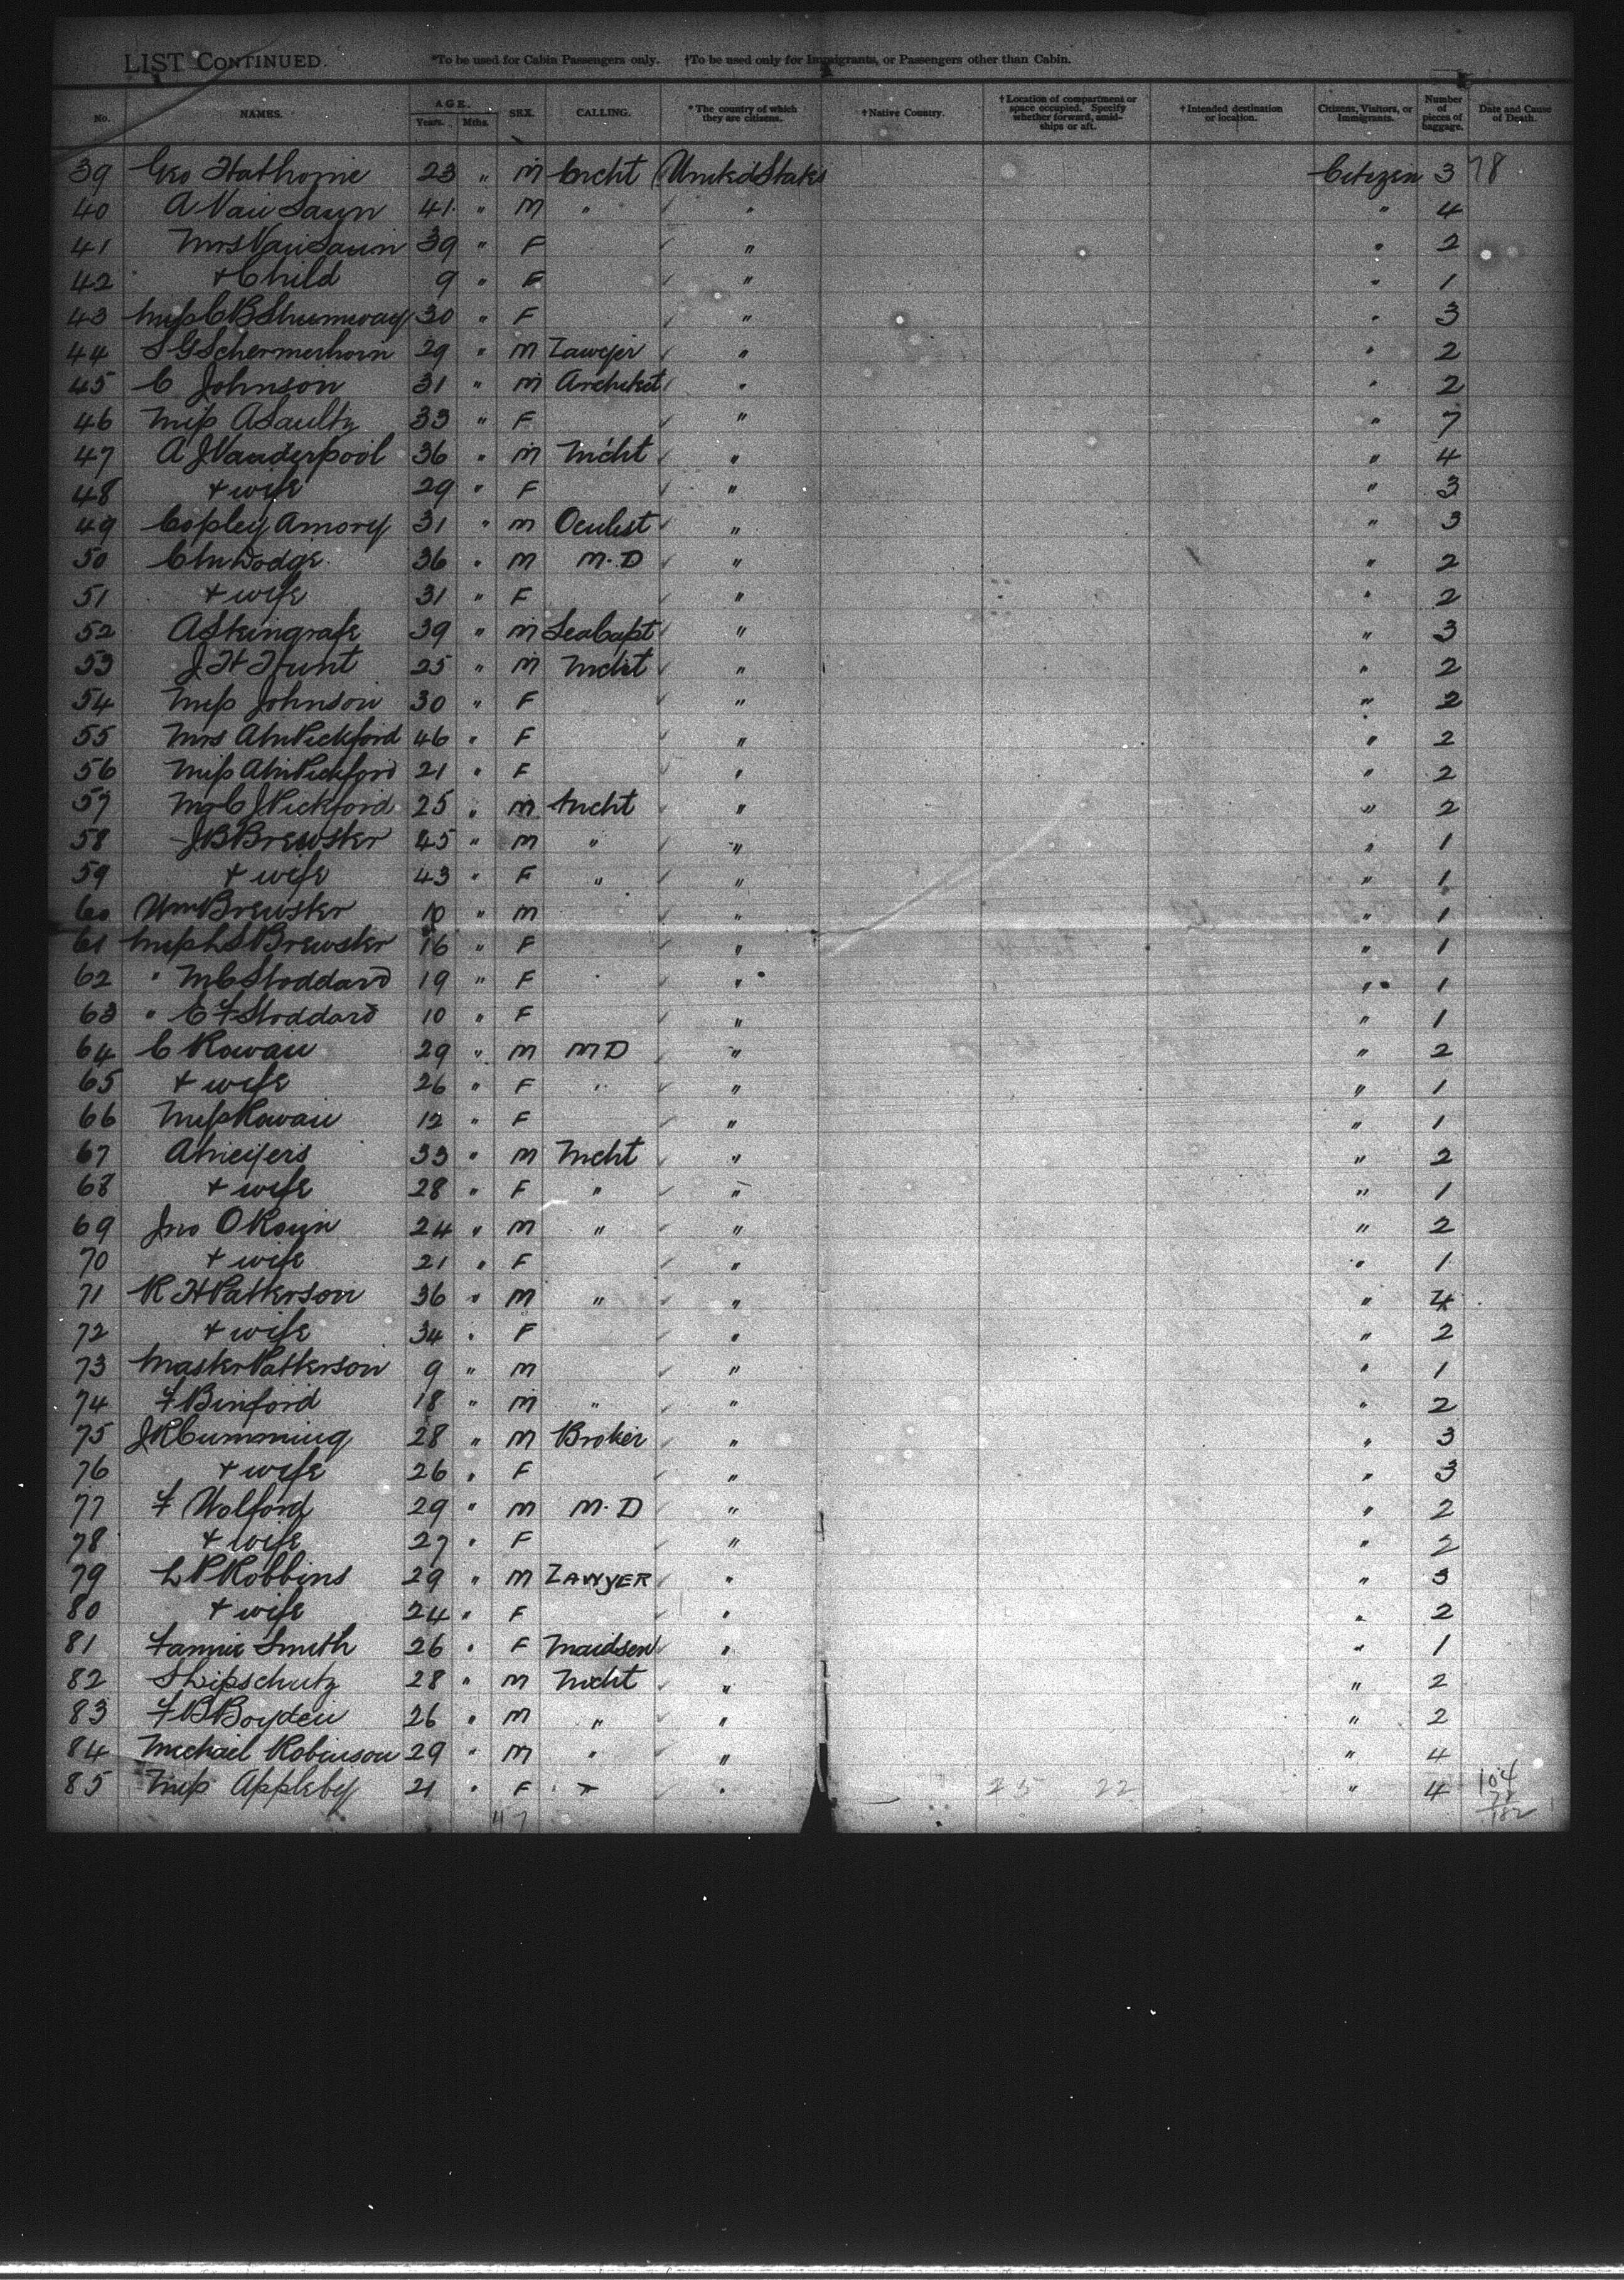 LIST CONTINUED. *To be used for Cabin Passengers only. †To be used only for Immigrants, or Passengers other than Cabin.
No. NAMES. AGE. Years. Mths. SEX. CALLING. *The country of which they are citizens. †Native Country. †Location of compartment or space occupied. Specify whether forward, amidships or aft. †Intended destination or location. Citizens, Visitors, or Immigrants. Number of pieces of baggage. Date and Cause of Death.
39 Geo Hathorne 23 " M Mcht United States Citizen 3 78
40 A Van Saun 41 " M " " " 4
41 Mrs Van Saun 39 " F " " 2
42 + Child 9 " F " " 1
43 Miss C B Shumway 30 " F " " 3
44 S G Schermerhorn 29 " M Lawyer " " 2
45 C Johnson 31 " M Architect " " 2
46 Miss A Saultz 33 " F " " 7
47 A J Vanderpool 36 " M Mcht " " 4
48 + wife 29 " F " " 3
49 Copley Amory 31 " M Oculist " " 3
50 C M Dodge 36 " M M.D " " 2
51 + wife 31 " F " " 2
52 A Skingrafe 39 " M Sea Capt " " 3
53 J H Hunt 25 " M Mcht " " 2
54 Miss Johnson 30 " F " " 2
55 Mrs A M Pickford 46 " F " " 2
56 Miss A M Pickford 21 " F " " 2
57 Mr C J Pickford 25 " M Mcht " " 2
58 J B Brewster 45 " M " " " 1
59 + wife 43 " F " " " 1
60 Wm Brewster 10 " M " " 1
61 Miss L S Brewster 16 " F " " 1
62 " M C Stoddard 19 " F " " 1
63 " E F Stoddard 10 " F " " 1
64 C Rowan 29 " M M D " " 2
65 + wife 26 " F " " " 1
66 Miss Rowan 12 " F " " 1
67 A Meyers 33 " M Mcht " " 2
68 + wife 28 " F " " " 1
69 Jno O Rourn 24 " M " " " 2
70 + wife 21 " F " " 1
71 R H Patterson 36 " M " " " 4
72 + wife 34 " F " " 2
73 Master Patterson 9 " M " " 1
74 F Binford 18 " M " " " 2
75 J R Cumming 28 " M Broker " " 3
76 + wife 26 " F " " 3
77 F Wolford 29 " M M.D " " 2
78 + wife 27 " F " " 2
79 L P Robbins 29 " M LAWYER " " 3
80 + wife 24 " F " " 2
81 Fannie Smith 26 " F Maidser " " 1
82 S Lipschutz 28 " M Mcht " " 2
83 F B Boyden 26 " M " " " 2
84 Michael Robinson 29 " M " " " 4
85 Miss Appleby 21 " F " 25 22 " 4 104
78
182
47